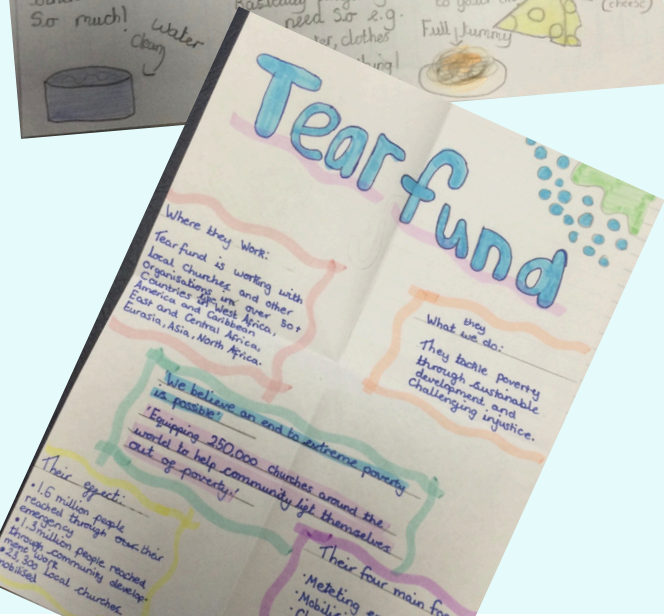 So much!
Water
Clean
need so e.g.
clothes
Full Yummy
(cheese)
Tearfund
Where they Work:
Tearfund is working with
local churches and other
Organisations in over 50+
Countries in West Africa,
America and Caribbean
East and Central Africa,
Eurasia, Asia, North Africa.
What they do:
They tackle poverty
through sustainable
development and
Challenging injustice.
'We believe an end to extreme poverty
is possible'
'Equipping 250,000 churches around the
world to help community lift themselves
out of poverty!'
Their effect:
•1.6 million people
reached through their
emergency
•1.3 million people reached
through community develop-
ment work
•23,300 Local churches
mobilised
Their four main